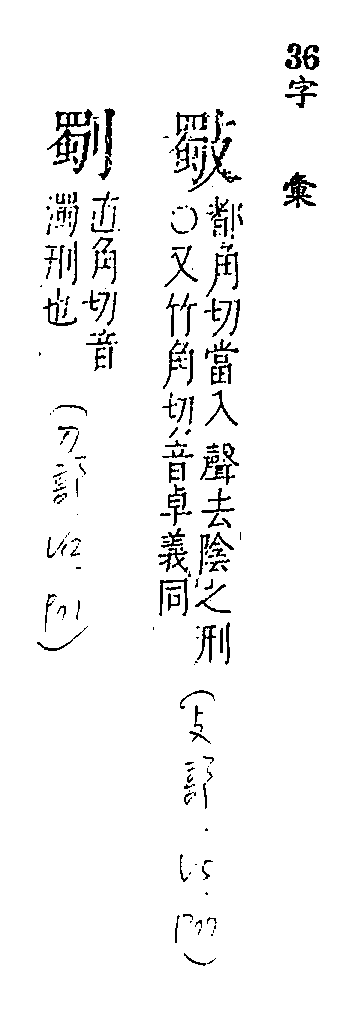 36字彙
斀
都角切當入聲去陰之刑
〇又竹角切音卓義同
(攴部.V5.P77)
劅
直角切音
濁刑也
(刀部.V2.P71)